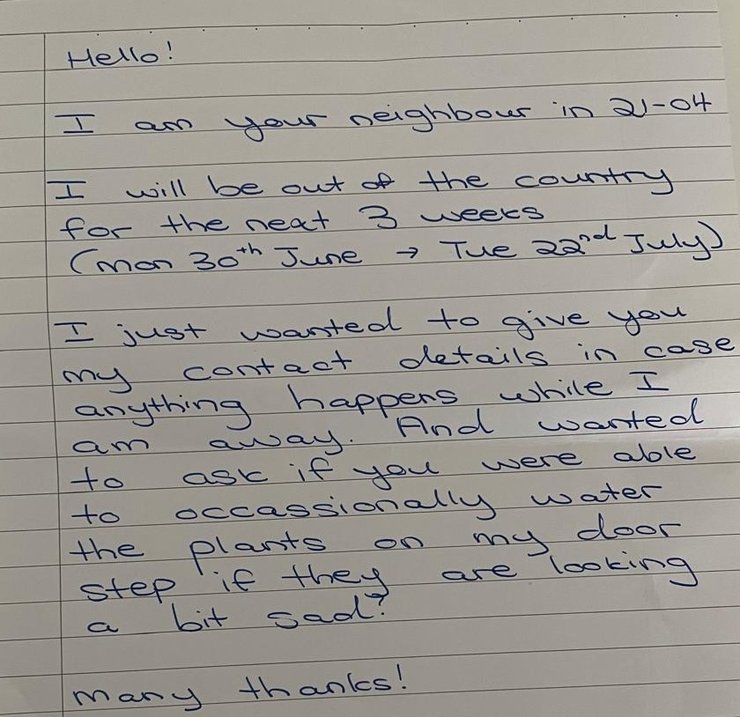 Hello!
I am your neighbour in 21-04
I will be out of the country
for the next 3 weeks
(mon 30th June → Tue 22nd July)
I just wanted to give you
my contact details in case
anything happens while I
am away. And wanted
to ask if you were able
to occassionally water
the plants on my door
step if they are looking
a bit sad?
many thanks!